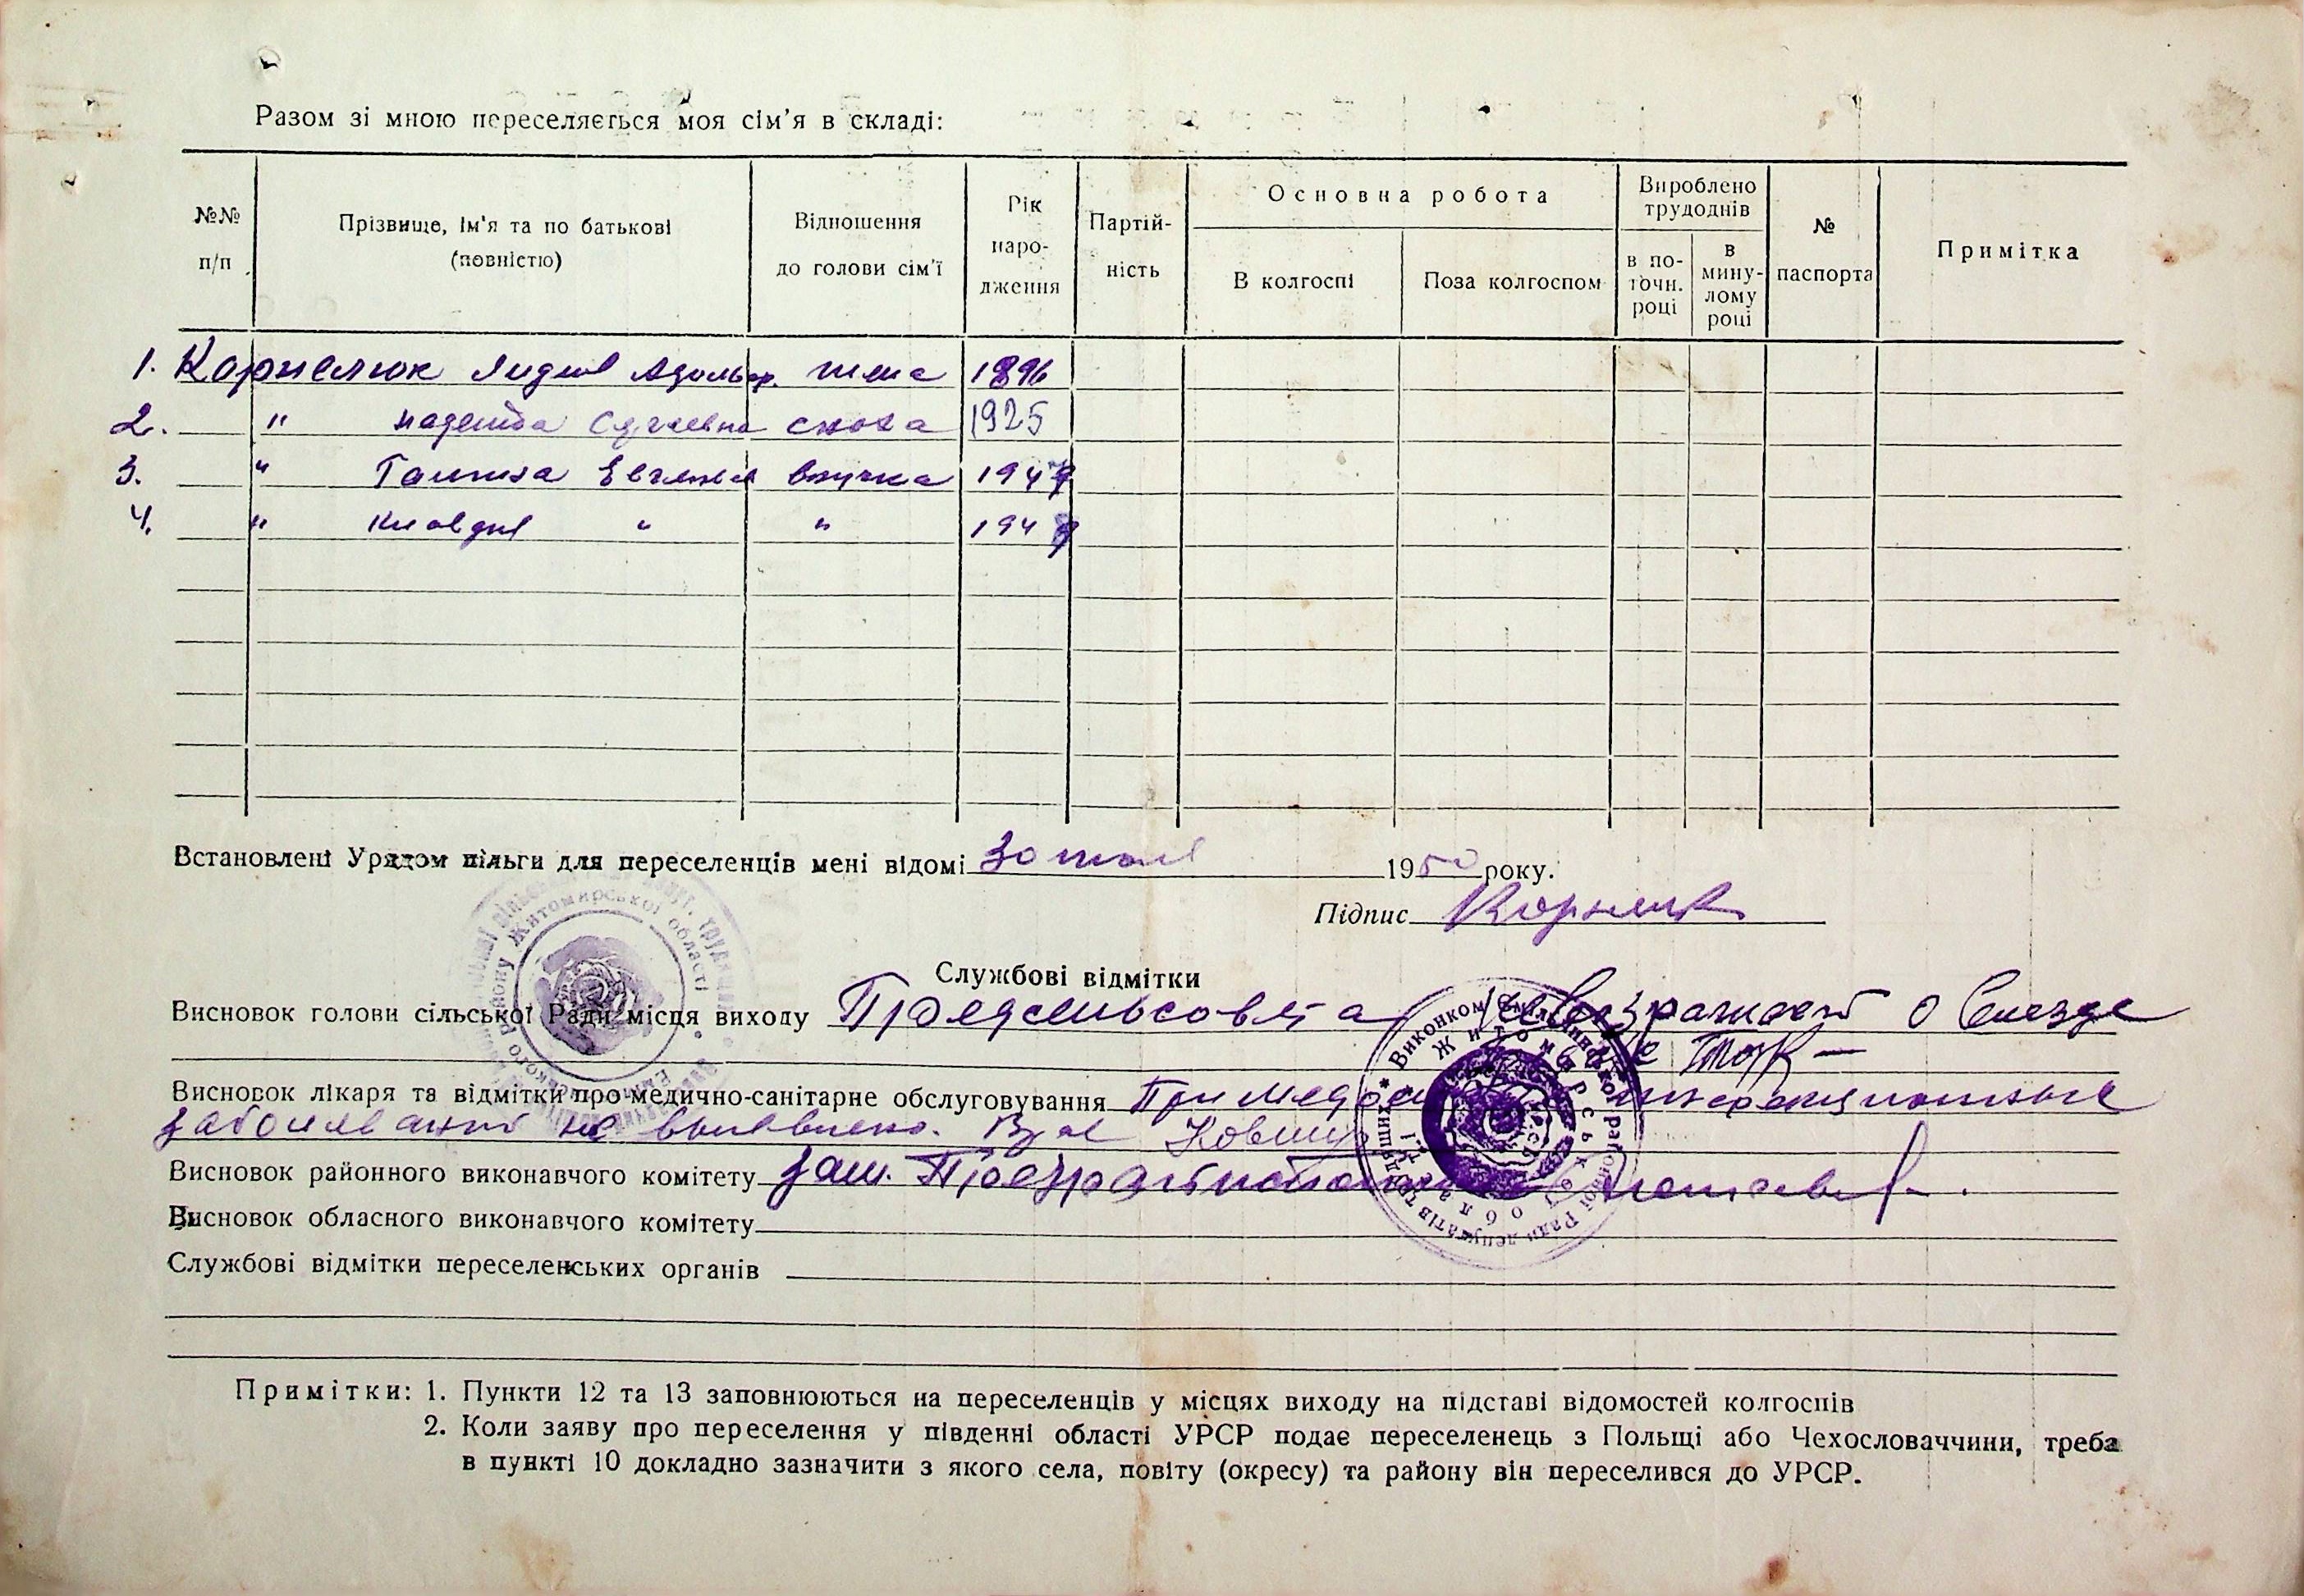 Разом зі мною переселяється моя сім'я в складі:
№№ п/п
Прізвище, ім'я та по батькові (повністю)
Відношення до голови сім'ї
Рік народження
Партійність
Основна робота
В колгоспі
Поза колгоспом
Вироблено трудоднів
в поточн. році
в минулому році
№ паспорта
Примітка
1. Корнелюк Лидия Адольф. жена 1896
2. " Надежда Сергеевна сноха 1925
3. " Галина Евгения внучка 1947
4. " Клавдия " " 194
Встановлені Урядом пільги для переселенців мені відомі 30 мая 1950 року.
Підпис Корнелюк
Службові відмітки
Висновок голови сільської Ради місця виходу Предсельсовета не возражает о выезде
Висновок лікаря та відмітки про медично-санітарне обслуговування При медосмотре инфекционные
заболеваний не выявлено.
Висновок районного виконавчого комітету зам.
Висновок обласного виконавчого комітету
Службові відмітки переселенських органів
Примітки: 1. Пункти 12 та 13 заповнюються на переселенців у місцях виходу на підставі відомостей колгоспів
2. Коли заяву про переселення у південні області УРСР подає переселенець з Польщі або Чехословаччини, треба
в пункті 10 докладно зазначити з якого села, повіту (окресу) та району він переселився до УРСР.